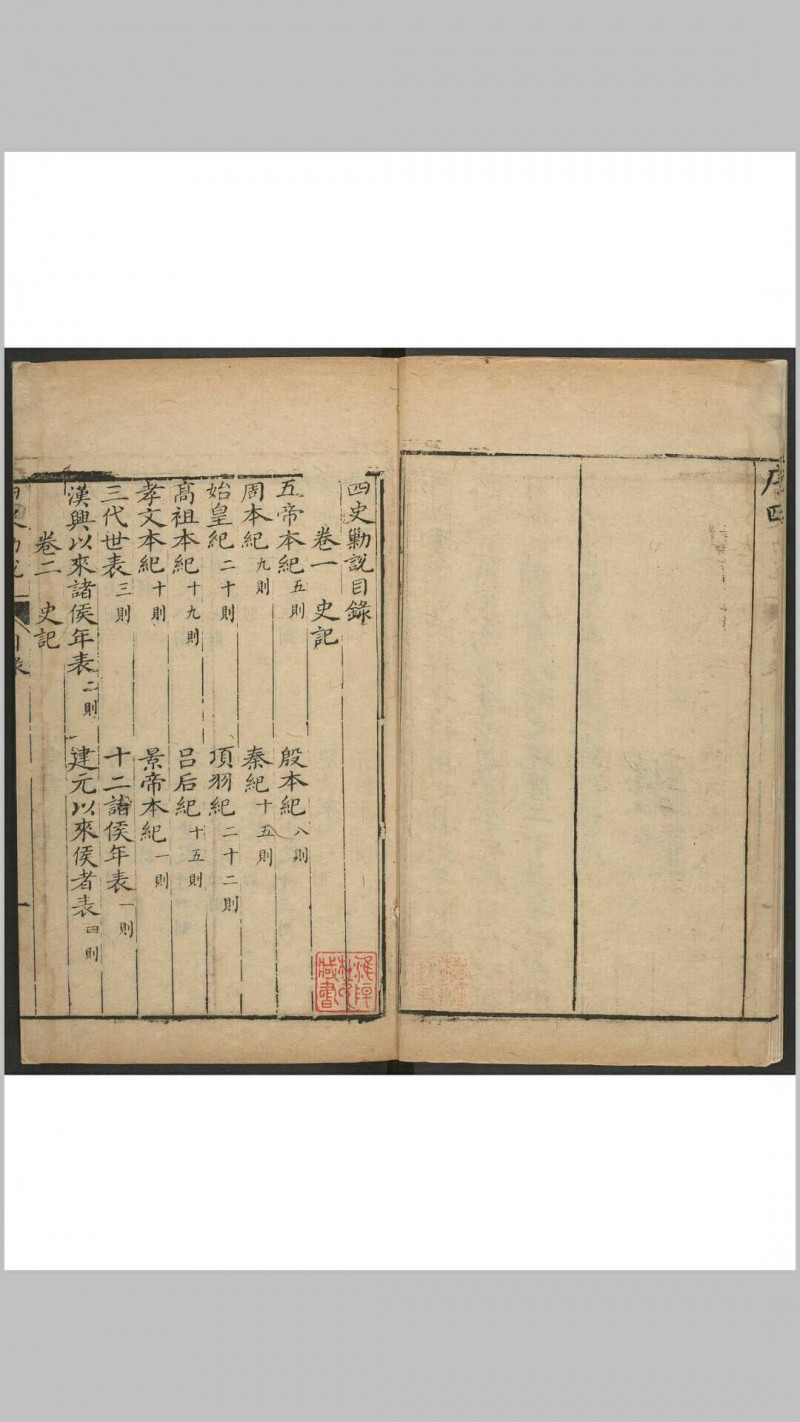 序 四
四史勦説目錄
卷一 史記
五帝本紀五則 殷本紀八則
周本紀九則 秦紀十五則
始皇紀二十則 項羽紀二十二則
髙祖本紀十九則 吕后紀十五則
孝文本紀十則 景帝本紀一則
三代世表三則 十二諸侯年表一則
漢興以來諸侯年表二則 建元以來侯者表四則
卷二 史記